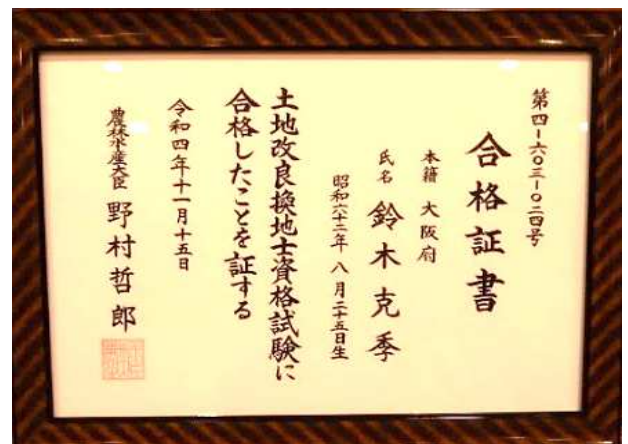 第四-六〇三-〇二四号
合格証書
本籍 大阪府
氏名 鈴木克季
昭和六十二年 八月二十五日生
土地改良換地士資格試験に
合格したことを証する
令和四年十一月十五日
農林水産大臣 野村哲郎